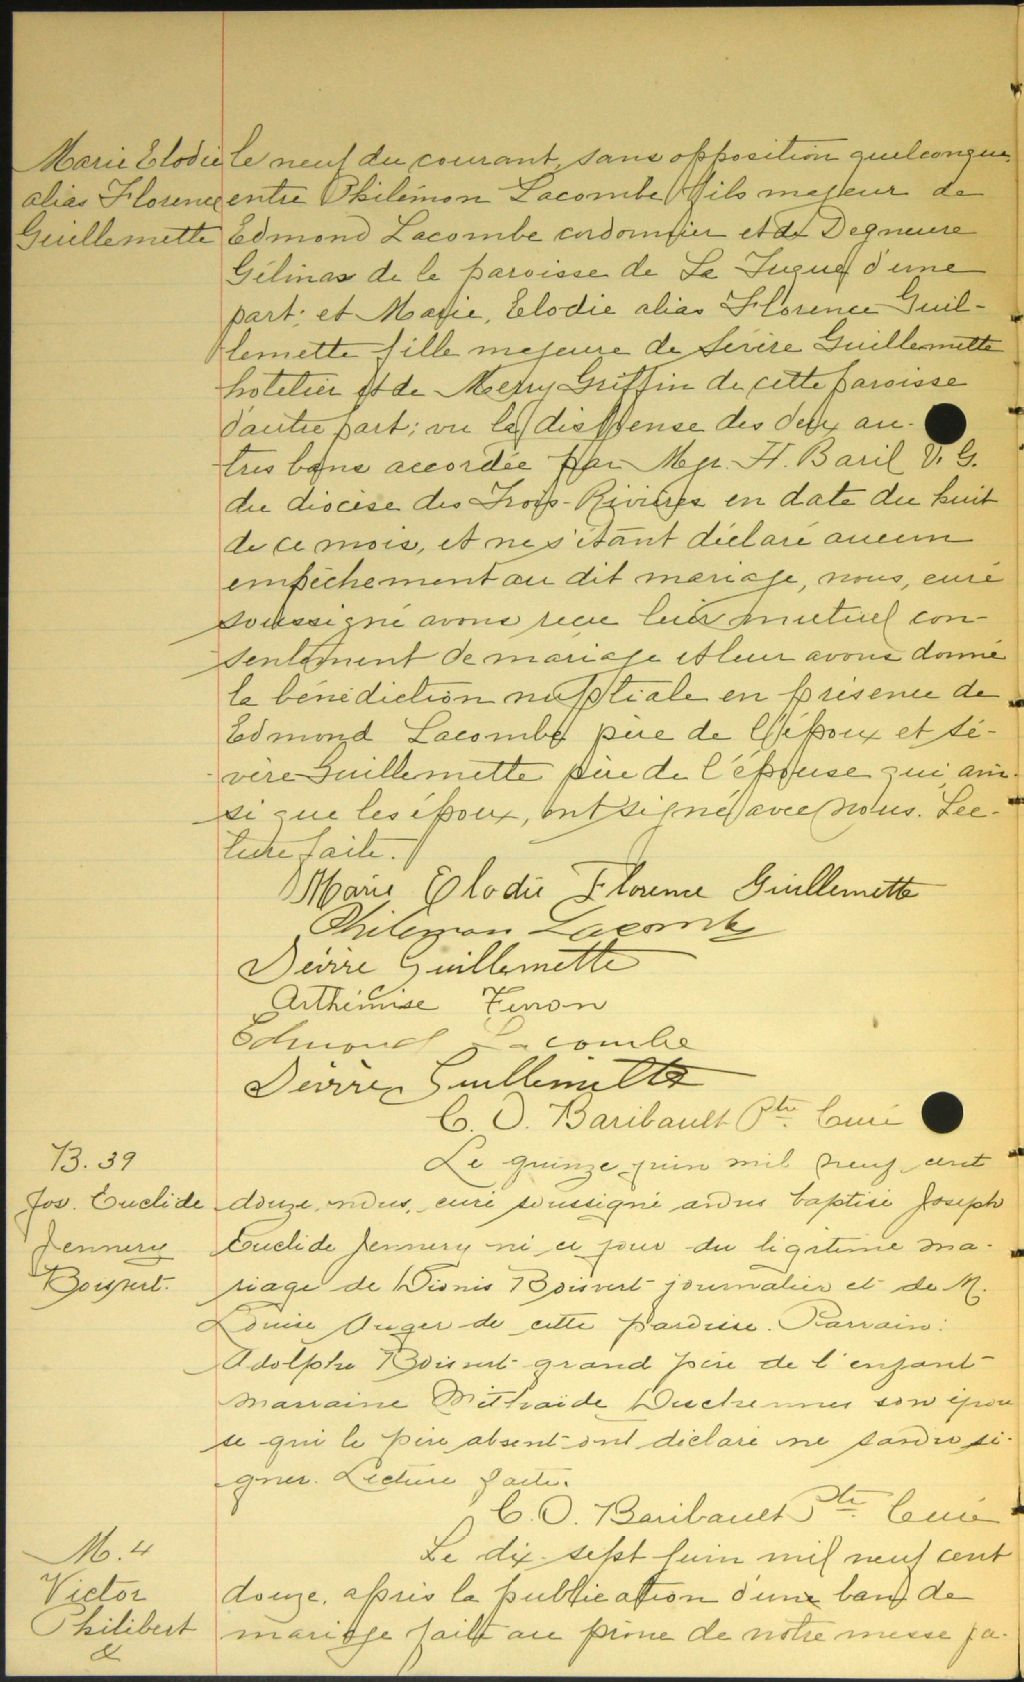 Marie Elodie
alias Florence
Guillemette
le neuf du courant, sans opposition quelconque,
entre Philémon Lacombe fils majeur de
Edmond Lacombe cordonnier et de Degneure
Gélinas de la paroisse de La Tuque d'une
part; et Marie, Elodie alias Florence Guil-
lemette fille majeure de Sévère Guillemette
hotelier et de Mery Griffin de cette paroisse
d'autre part; vu la dispense des deux au-
tres bans accordée par Mgr. H. Baril V. G.
du diocèse des Trois-Rivières en date du huit
de ce mois, et ne s'étant déclaré aucun
empêchement au dit mariage, nous, curé
soussigné avons reçu leur mutuel con-
sentement de mariage et leur avons donné
la bénédiction nuptiale en présence de
Edmond Lacombe père de l'époux et Sé-
vère Guillemette père de l'épouse qui, ain-
si que les époux, ont signé avec nous. Lec-
ture faite.
Marie Elodie Florence Guillemette
Philemon Lacombe
Sévère Guillemette
Arthémise Ferron
Edmond Lacombe
Sévère Guillemette
C. O. Baribault Ptre. Curé
B. 39
Jos. Euclide
Jennery
Boisvert.
Le quinze juin mil neuf cent
douze, nous, curé soussigné avons baptisé Joseph
Euclide Jennery né ce jour du ligitime ma-
riage de Dionis Boisvert journalier et de M.
Louise Auger de cette paroisse. Parrain:
Adolphe Boisvert grand père de l'enfant
marraine Duchesnes son épou
se qui le père absent ont déclaré ne savoir si-
gner. Lecture faite.
C. O. Baribault Ptre. Curé
M. 4
Victor
Philibert
&
Le dix-sept juin mil neuf cent
douze, après la publication d'une ban de
mariage faite au prône de notre messe pa-